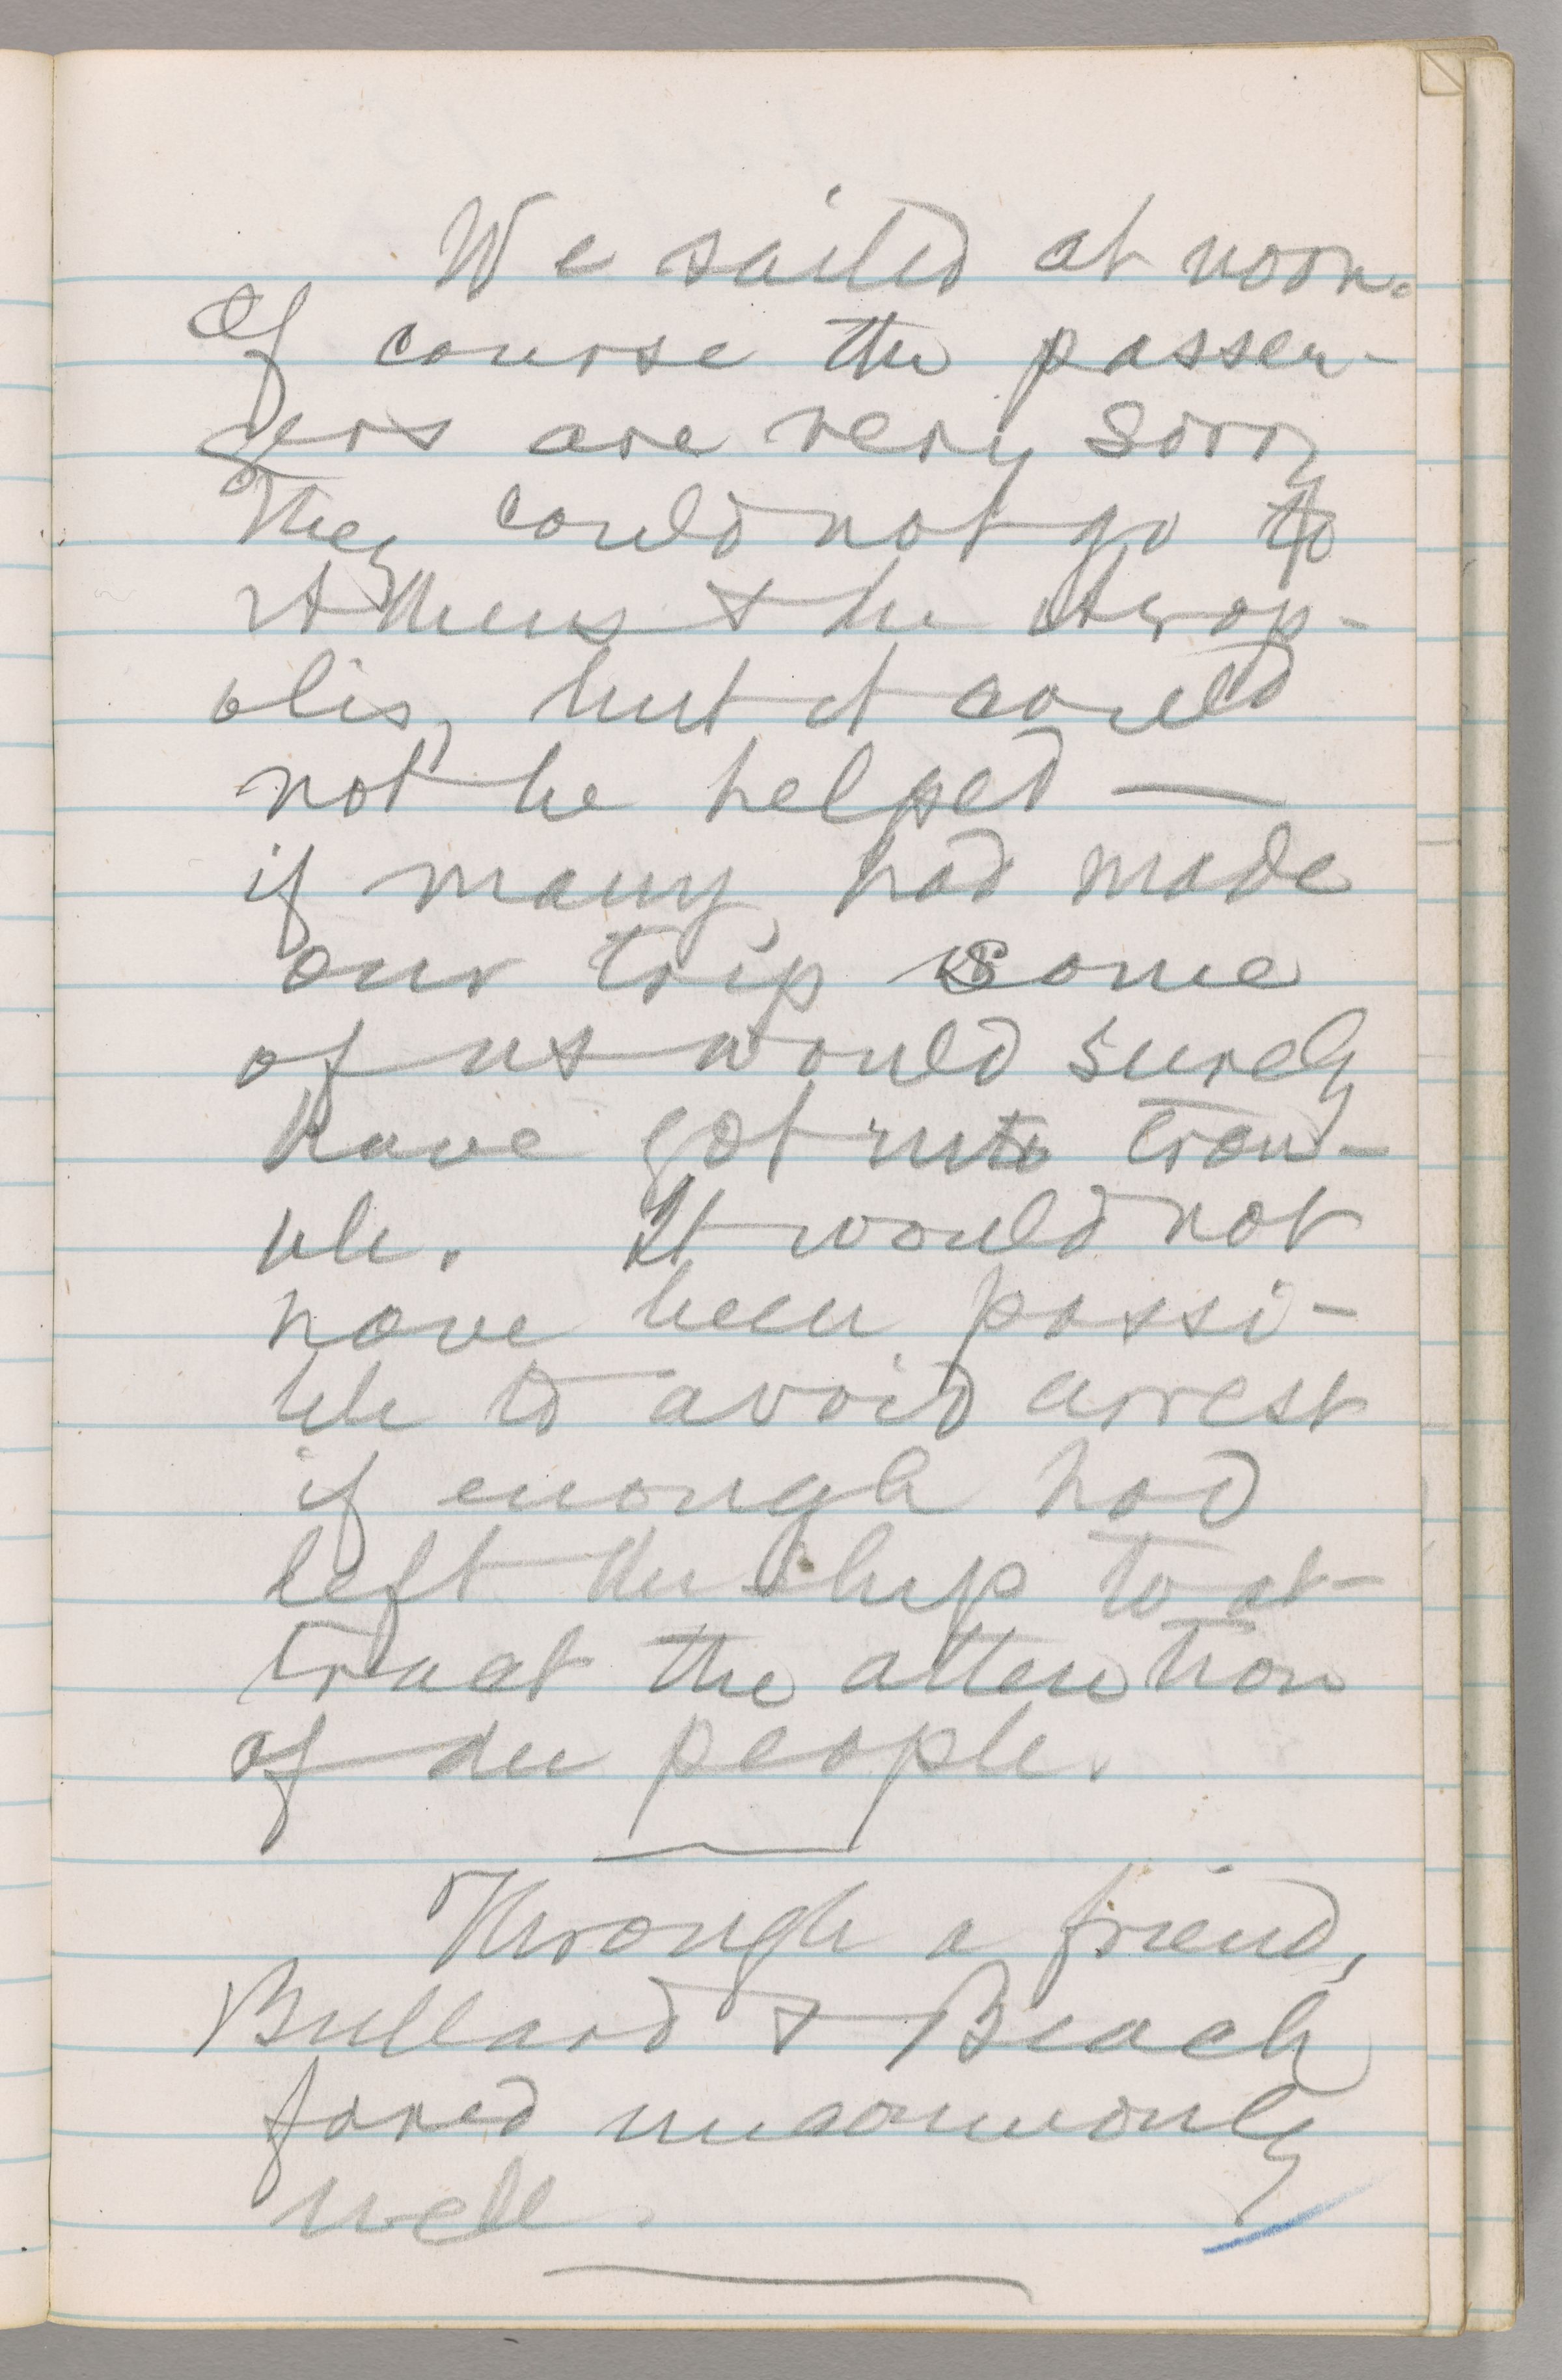 We sailed at noon.
Of course the passen-
gers are very sorry
they could not go to
Athens & the Acrop-
olis, but it could
not be helped —
if many had made
our trip some
of us would surely
have got into trou-
ble. It would not
have been possi-
ble to avoid arrest
if enough had
left the ship to at-
tract the attention
of the people.
Through a friend,
Bullard & Beach
fared uncommonly
well.